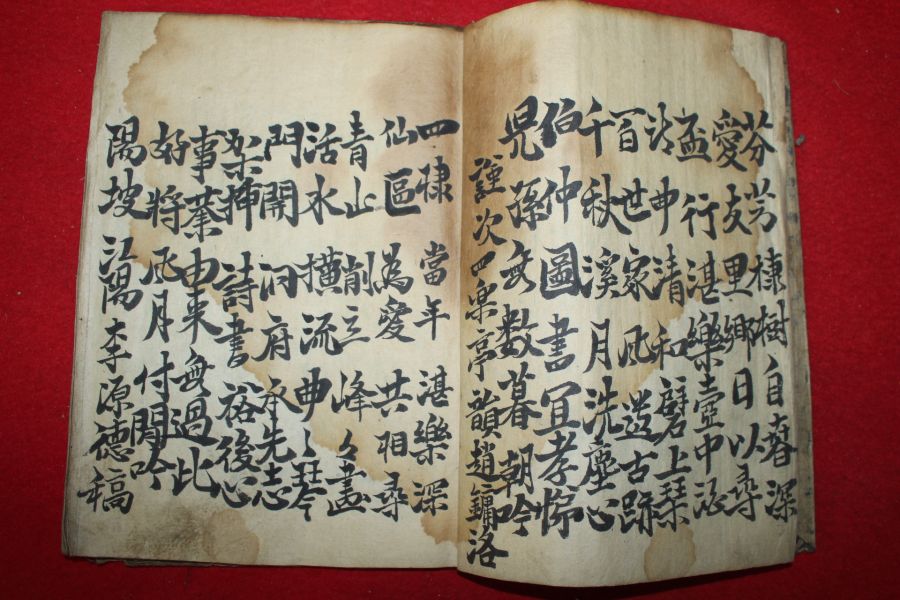 芬芳棣樹自春深
愛友里鄉日以尋
盃行湛樂壺中
詩申清和磬上琴
百世家風遺古跡
千秋溪月洗塵心
伯仲圖書宜孝悌
兒孫無數暮朝吟
謹次四樂亭韻趙鏞洛
四棣當年湛樂深
仙區為愛共相尋
青山削立峰々畫
活水橫流曲〻琴
門開洞府承先志
架揷詩書裕後心
事業由來無過此
好將風月付閒吟
陽坡江陽李源德稿